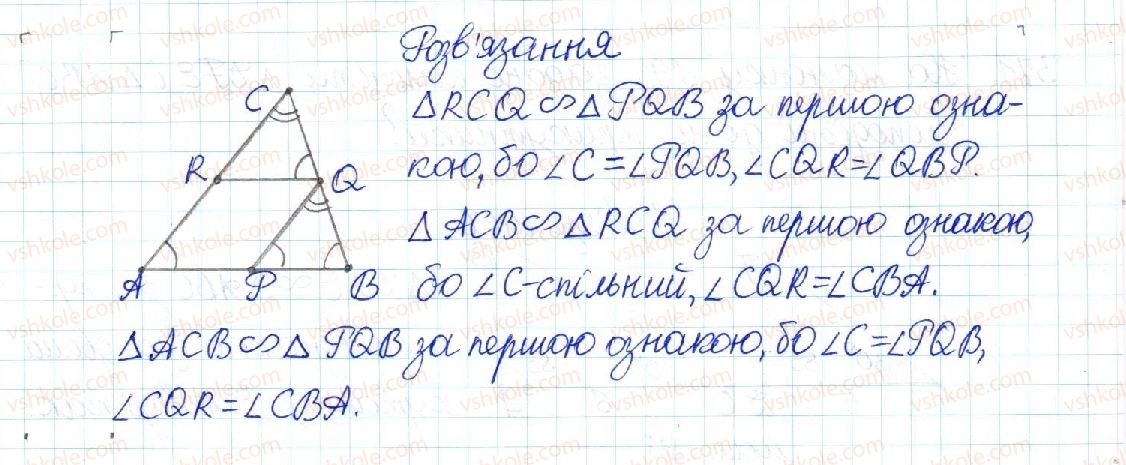 Розв'язання
△RCQ ∽ △PQB за першою озна-
кою, бо ∠C = ∠PQB, ∠CQR = ∠QBP.
△ACB ∽ △RCQ за першою ознакою,
бо ∠C - спільний, ∠CQR = ∠CBA.
△ACB ∽ △PQB за першою ознакою, бо ∠C = ∠PQB,
∠CQR = ∠CBA.
C
R
Q
A
P
B
vshkole.com